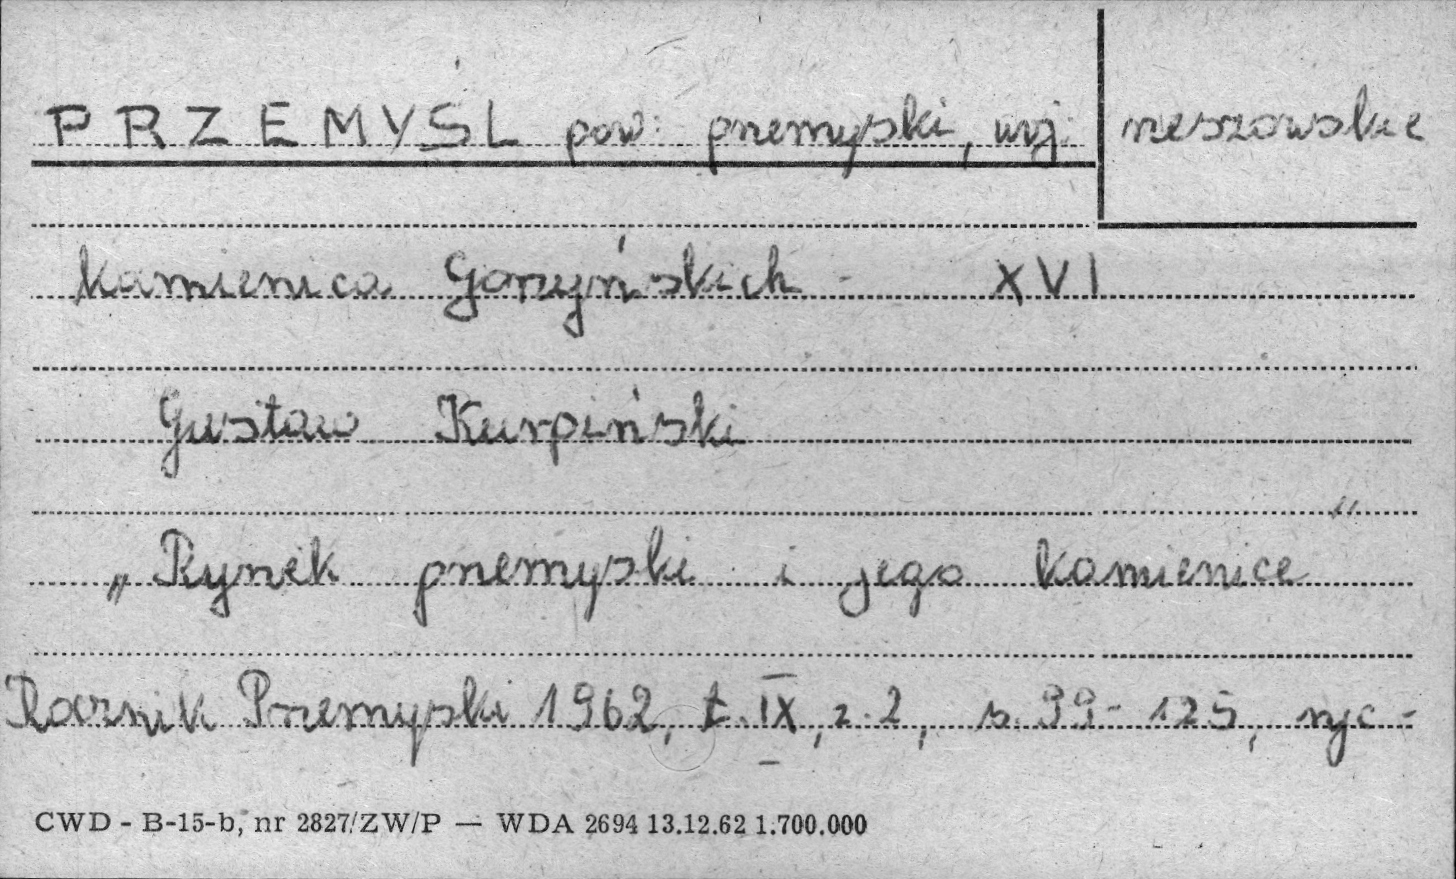 PRZEMYŚL pow. przemyski, wj. rzeszowskie
Kamienica Gorzyńskich - XVI
Gustaw Kurpiński
„Rynek przemyski i jego kamienice"
Rocznik Przemyski 1962, t. IX, z. 2, s. 99-125, ryc-
CWD - B-15-b, nr 2827/ZW/P — WDA 2694 13.12.62 1.700.000